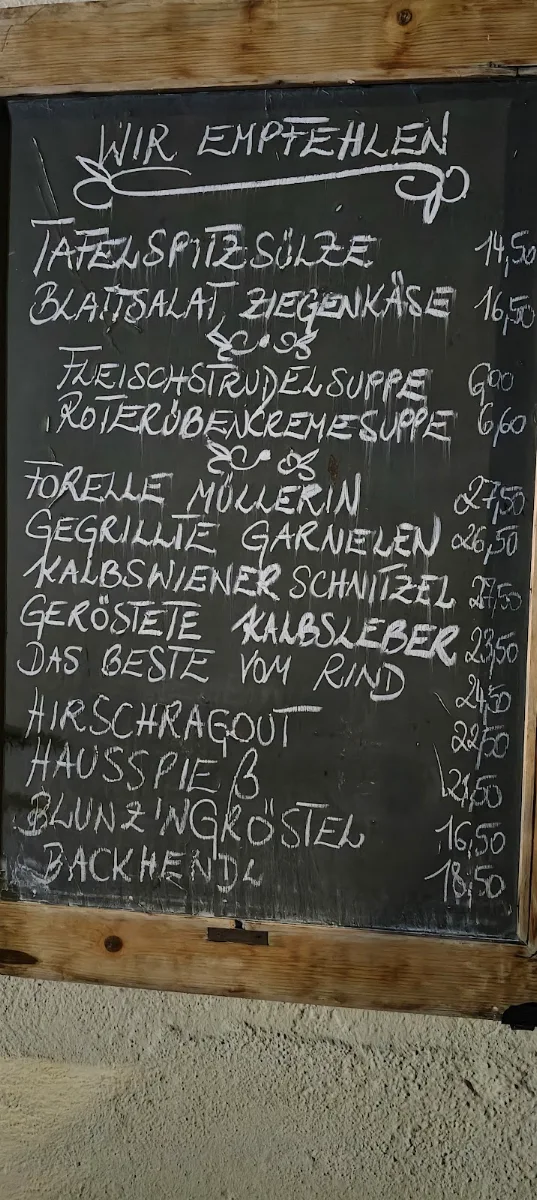 WIR EMPFEHLEN
TAFELSPITZSÜLZE 14,50
BLATTSALAT, ZIEGENKÄSE 16,50
FLEISCHSTRUDELSUPPE
ROTERÜBENCREMESUPPE 6,60
FORELLE MÜLLERIN 27,50
GEGRILLTE GARNELEN 26,50
KALBSWIENER SCHNITZEL 27,50
GERÖSTETE KALBSLEBER 23,50
DAS BESTE VOM RIND 24,50
HIRSCHRAGOUT 22,50
HAUSSPIEß 21,50
BLUNZ'NGRÖSTEL 16,50
BACKHENDL 18,50